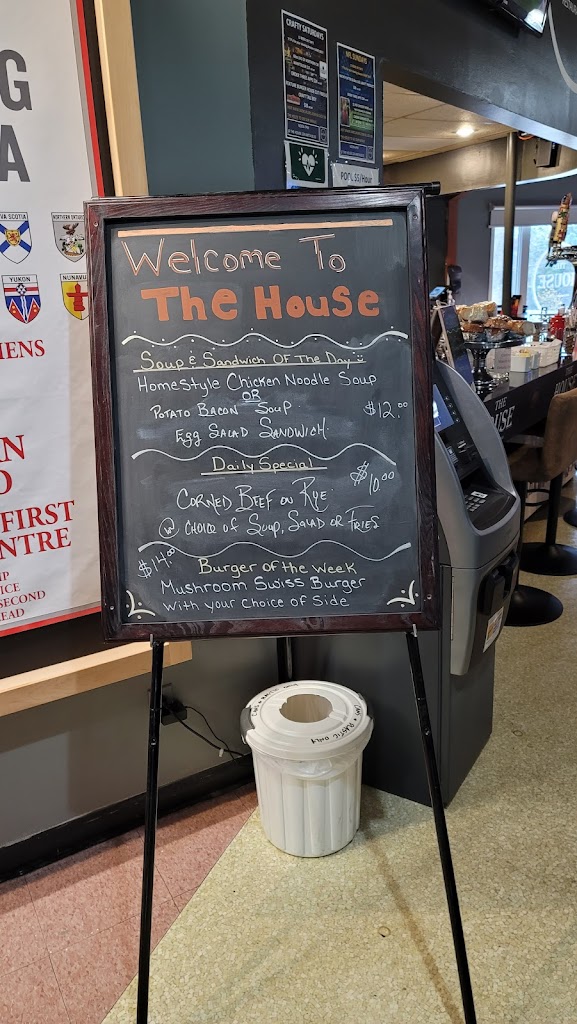 G
A
VA SCOTIA
NORTHERN ONTARIO
YUKON
NUNAVU
IENS
N
FIRST
NTRE
IP
ICE
SECOND
EAD
CRAFTY SATURDAYS
NFL SUNDAYS
POOL $5/Hour
Welcome To
The House
Soup & Sandwich Of The Day
Homestyle Chicken Noodle Soup
OR
Potato Bacon Soup $12.00
Egg Salad Sandwich
Daily Special $10.00
Corned Beef on Rye
W/ Choice of Soup, Salad or Fries
$14.00
Burger of the Week
Mushroom Swiss Burger
with your Choice of Side
THE
USE
CANS & PLASTIC ONLY